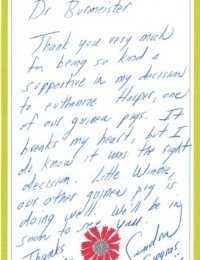 Dr Burmeister
Thank you very much
for being so kind &
supportive in my decision
to euthanize Harper, one
of our guinea pigs. It
breaks my heart, but I
do know it was the right
decision. Little Winnie,
our other guinea pig is
doing well. We'll be in
soon to see yall.
Thanks